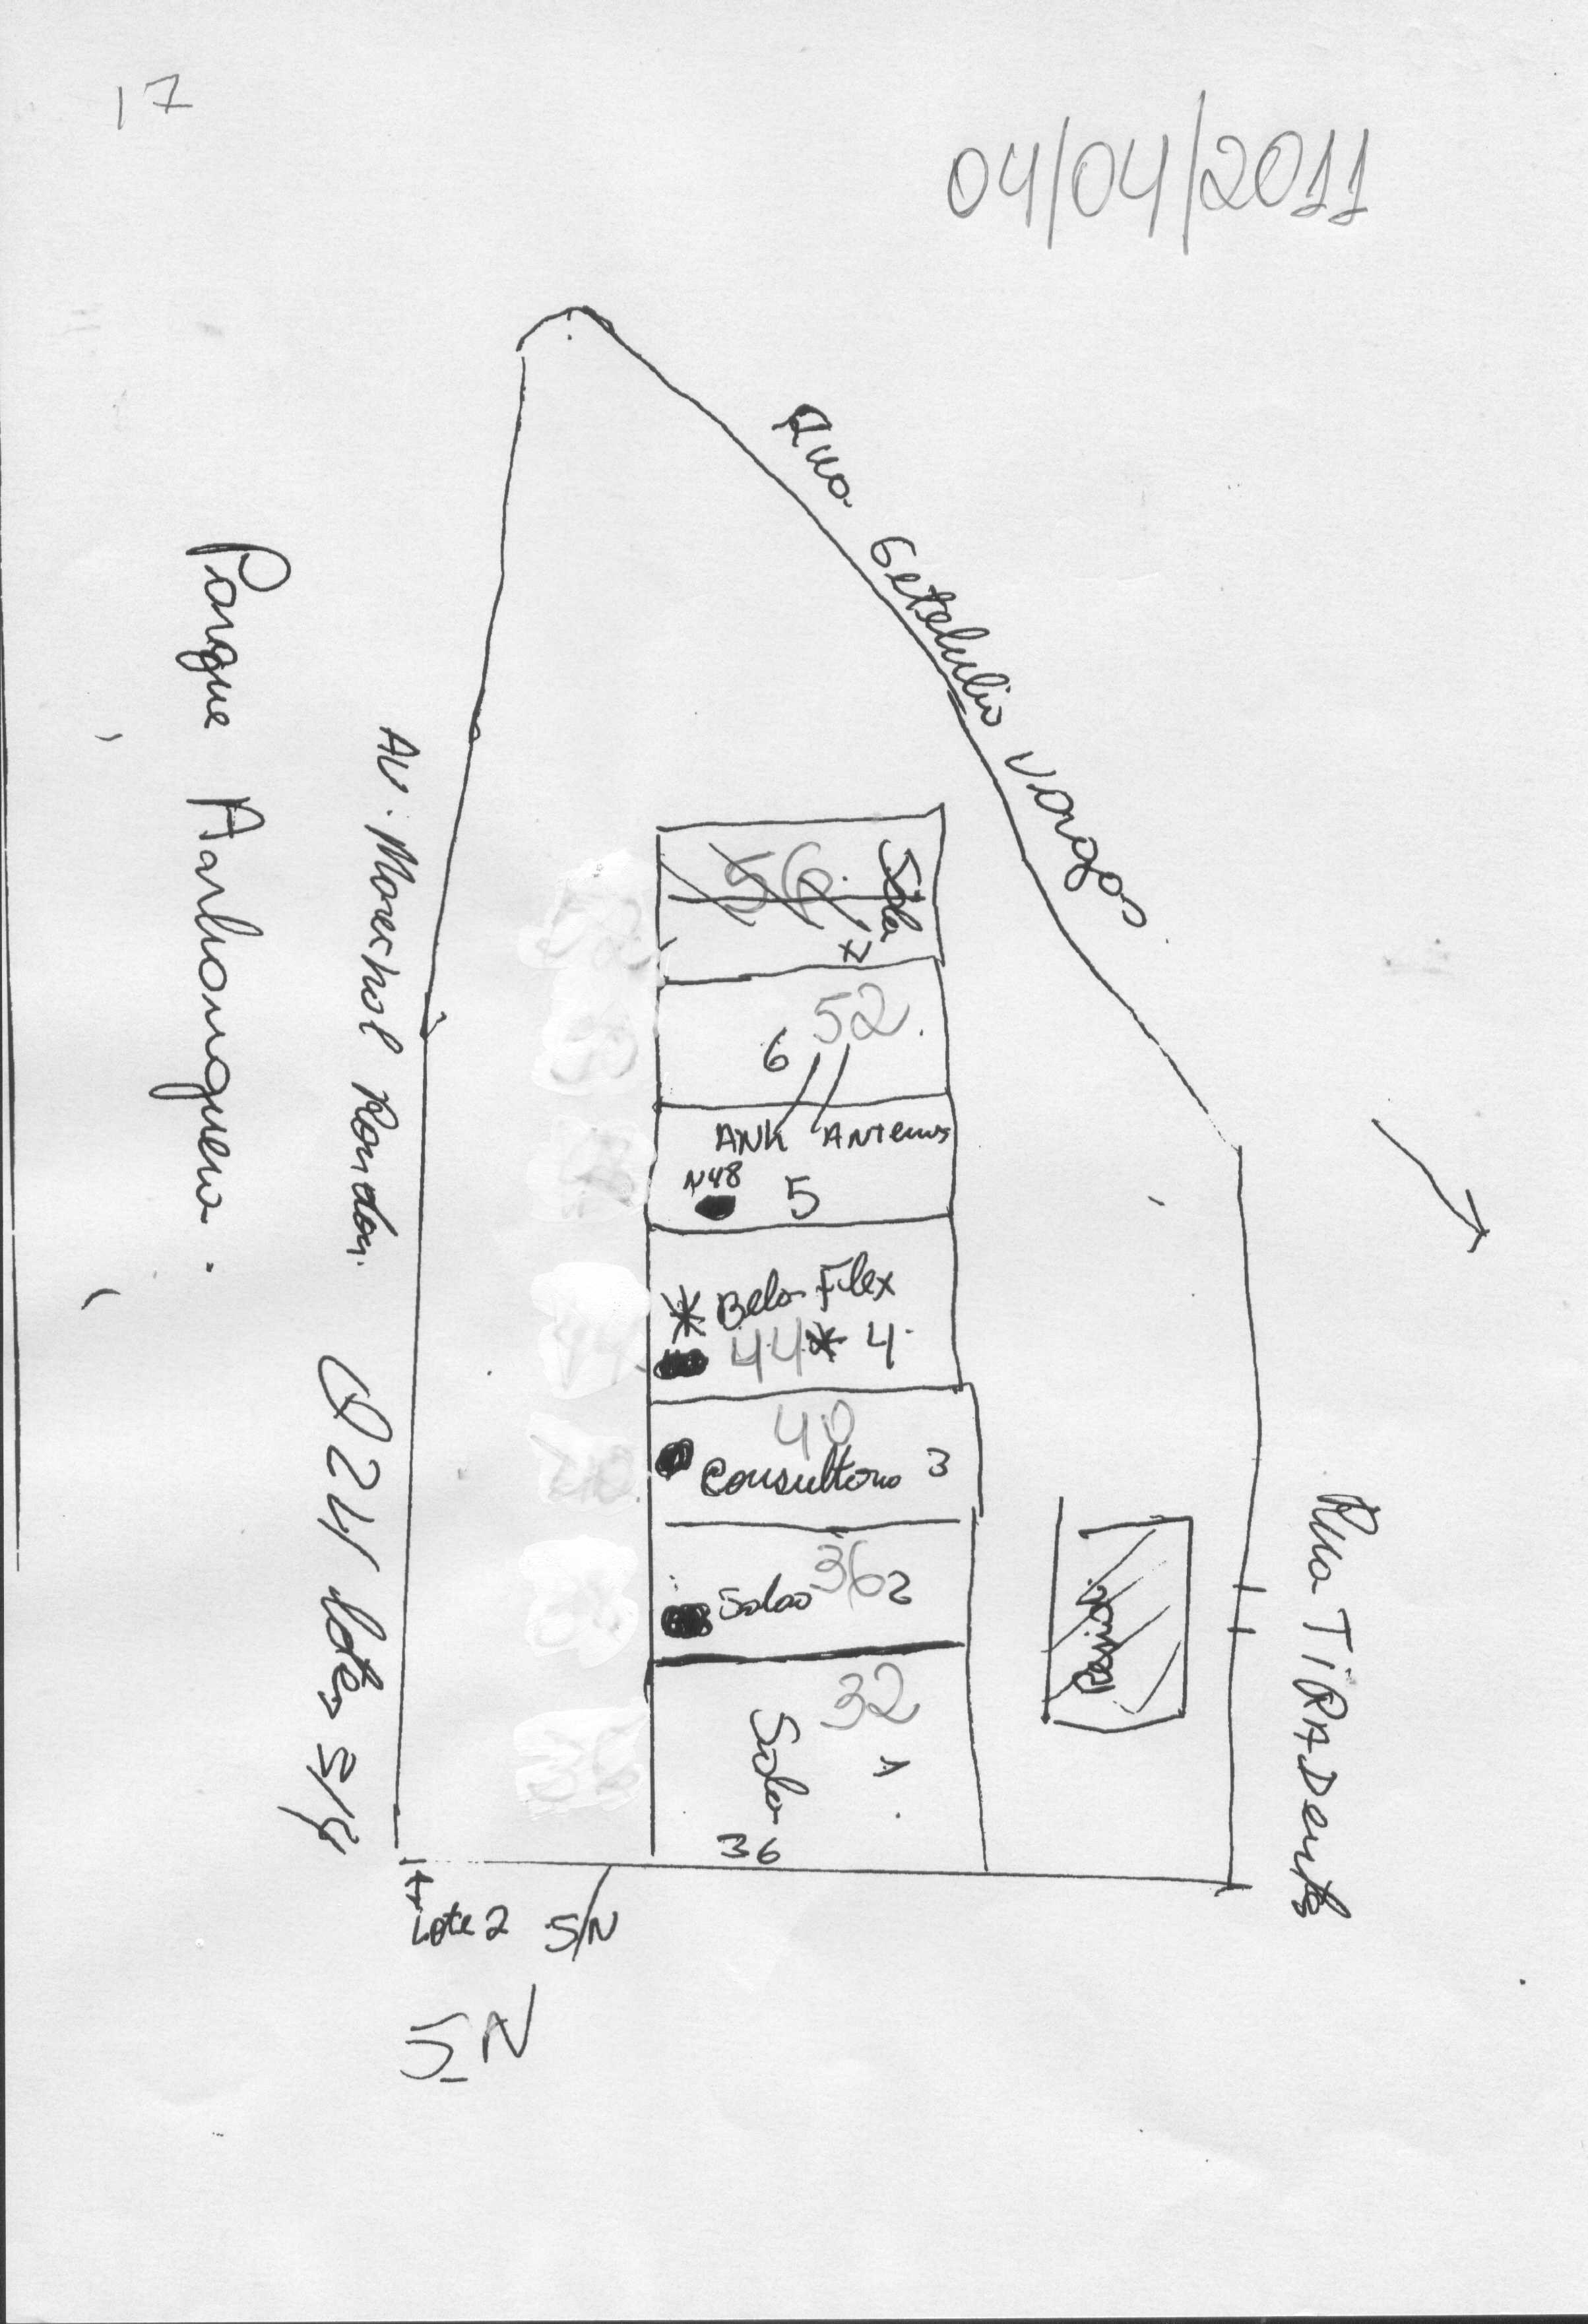 17
04/04/2011
Rua Getelulio Vargas
Parque Anhanguera.
Av. Marechal Rondon.
Q 24 lotes 3/4
Sala
56
7
52
6
ANK Antenas
N48
5
Bela Flex
44 4
40
Consultorio 3
36
Salao 2
32
Sala 1
36
Rua TiRADentes
Lote 2 S/N
SN